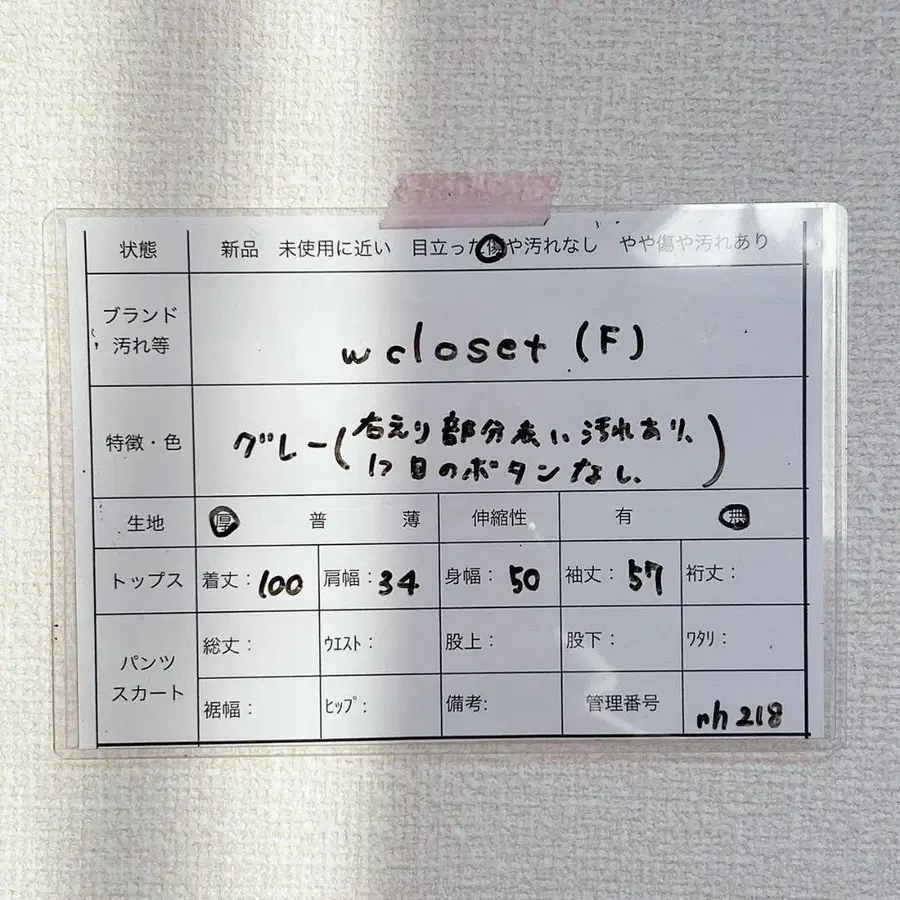 状態 新品 未使用に近い 目立った傷や汚れなし やや傷や汚れあり
ブランド
汚れ等
w closet (F)
特徴・色
グレー(右えり部分表い汚れあり、
1つ目のボタンなし、)
生地 厚 普 薄 伸縮性 有 無
トップス 着丈:100 肩幅:34 身幅:50 袖丈:57 裄丈:
パンツ
スカート
総丈: ウエスト: 股上: 股下: ワタリ:
裾幅: ヒップ: 備考: 管理番号 nh 218